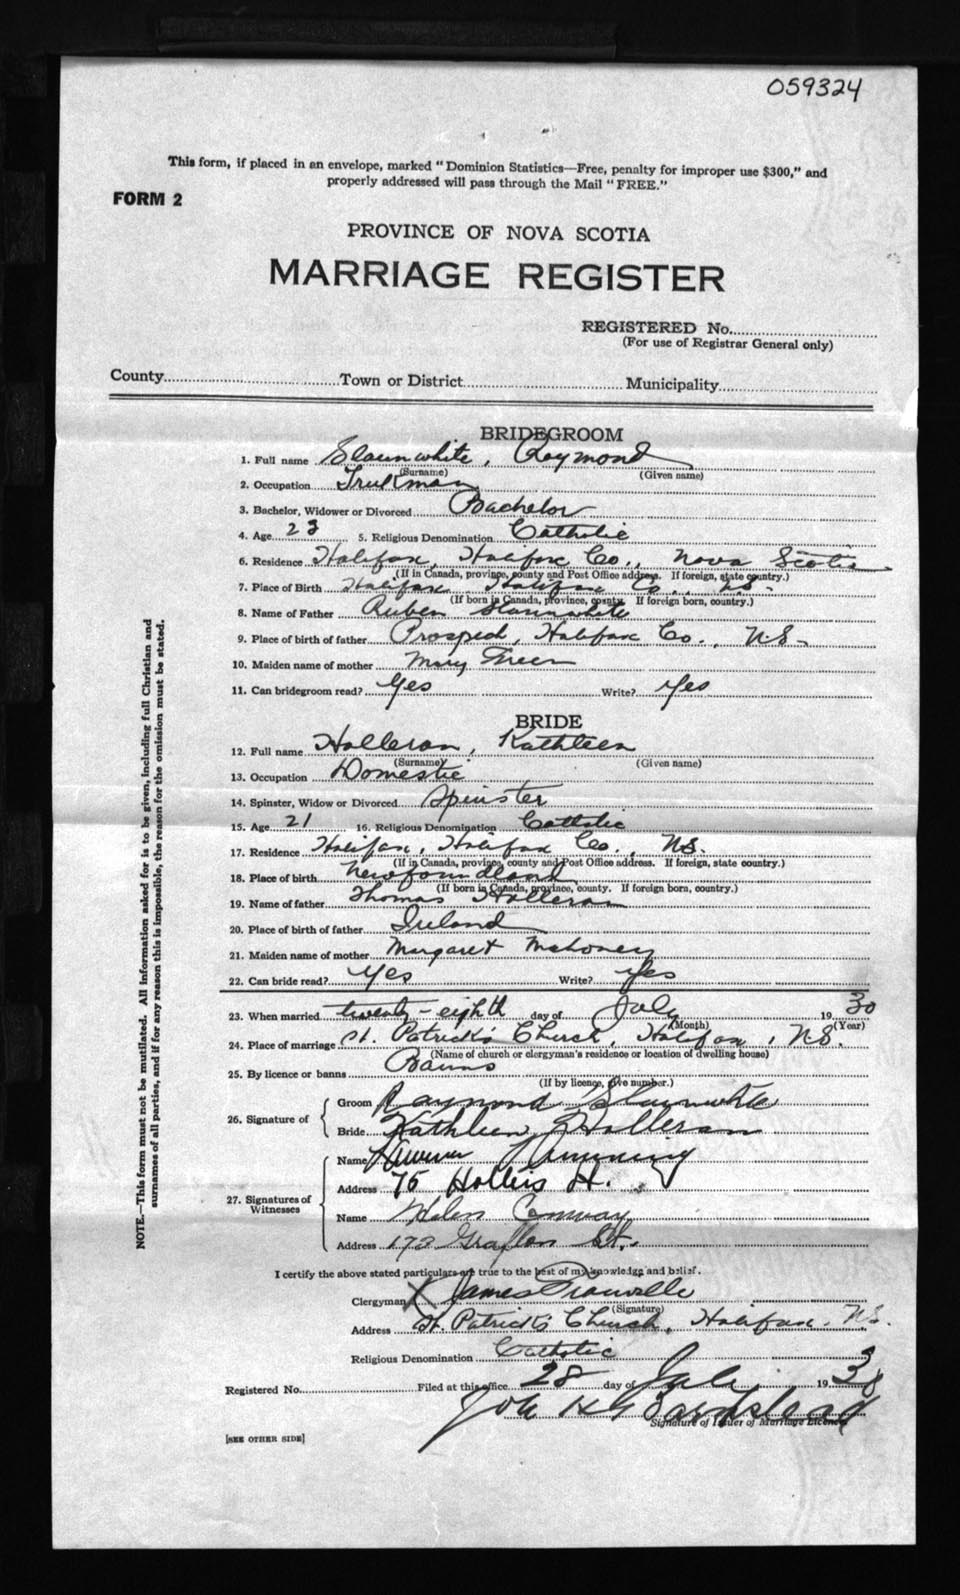 059324
This form, if placed in an envelope, marked "Dominion Statistics—Free, penalty for improper use $300," and
properly addressed will pass through the Mail "FREE."
FORM 2
PROVINCE OF NOVA SCOTIA
MARRIAGE REGISTER
REGISTERED No.
(For use of Registrar General only)
County Town or District Municipality
BRIDEGROOM
1. Full name Slaunwhite, Raymond
(Surname) (Given name)
2. Occupation Trukman
3. Bachelor, Widower or Divorced Bachelor
4. Age 23 5. Religious Denomination Catholic
6. Residence Halifax, Halifax Co., Nova Scotia
(If in Canada, province, county and Post Office address. If foreign, state country.)
7. Place of Birth Halifax Halifax Co., N.S.
(If born in Canada, province, county. If foreign born, country.)
8. Name of Father Ruben Slaunwhite
9. Place of birth of father Prospect, Halifax Co., N.S.
10. Maiden name of mother Mary Green
11. Can bridegroom read? Yes Write? Yes
BRIDE
12. Full name Holleran, Kathleen
(Surname) (Given name)
13. Occupation Domestic
14. Spinster, Widow or Divorced Spinster
15. Age 21 16. Religious Denomination Catholic
17. Residence Halifax, Halifax Co., N.S.
(If in Canada, province, county and Post Office address. If foreign, state country.)
18. Place of birth Newfoundland
(If born in Canada, province, county. If foreign born, country.)
19. Name of father Thomas Holleran
20. Place of birth of father Ireland
21. Maiden name of mother Margaret Mahoney
22. Can bride read? Yes Write? Yes
23. When married twenty-eighth day of July 1930
(Month) (Year)
24. Place of marriage St. Patrick's Church, Halifax, N.S.
(Name of church or clergyman's residence or location of dwelling house)
25. By licence or banns Banns
(If by licence, give number.)
26. Signature of
Groom Raymond Slaunwhite
Bride Kathleen Holleran
27. Signatures of
Witnesses
Name
Address 75 Hollis St.
Name Helen Conway
Address 173 Grafton St.
I certify the above stated particulars are true to the best of my knowledge and belief.
Clergyman X James
(Signature)
Address St. Patrick's Church, Halifax, N.S.
Religious Denomination Catholic
Registered No. Filed at this office 28 day of July 19
Signature of Issuer of Marriage Licences
[SEE OTHER SIDE]
NOTE.—This form must not be mutilated. All information asked for is to be given, including full Christian and
surnames of all parties, and if for any reason this is impossible, the reason for the omission must be stated.